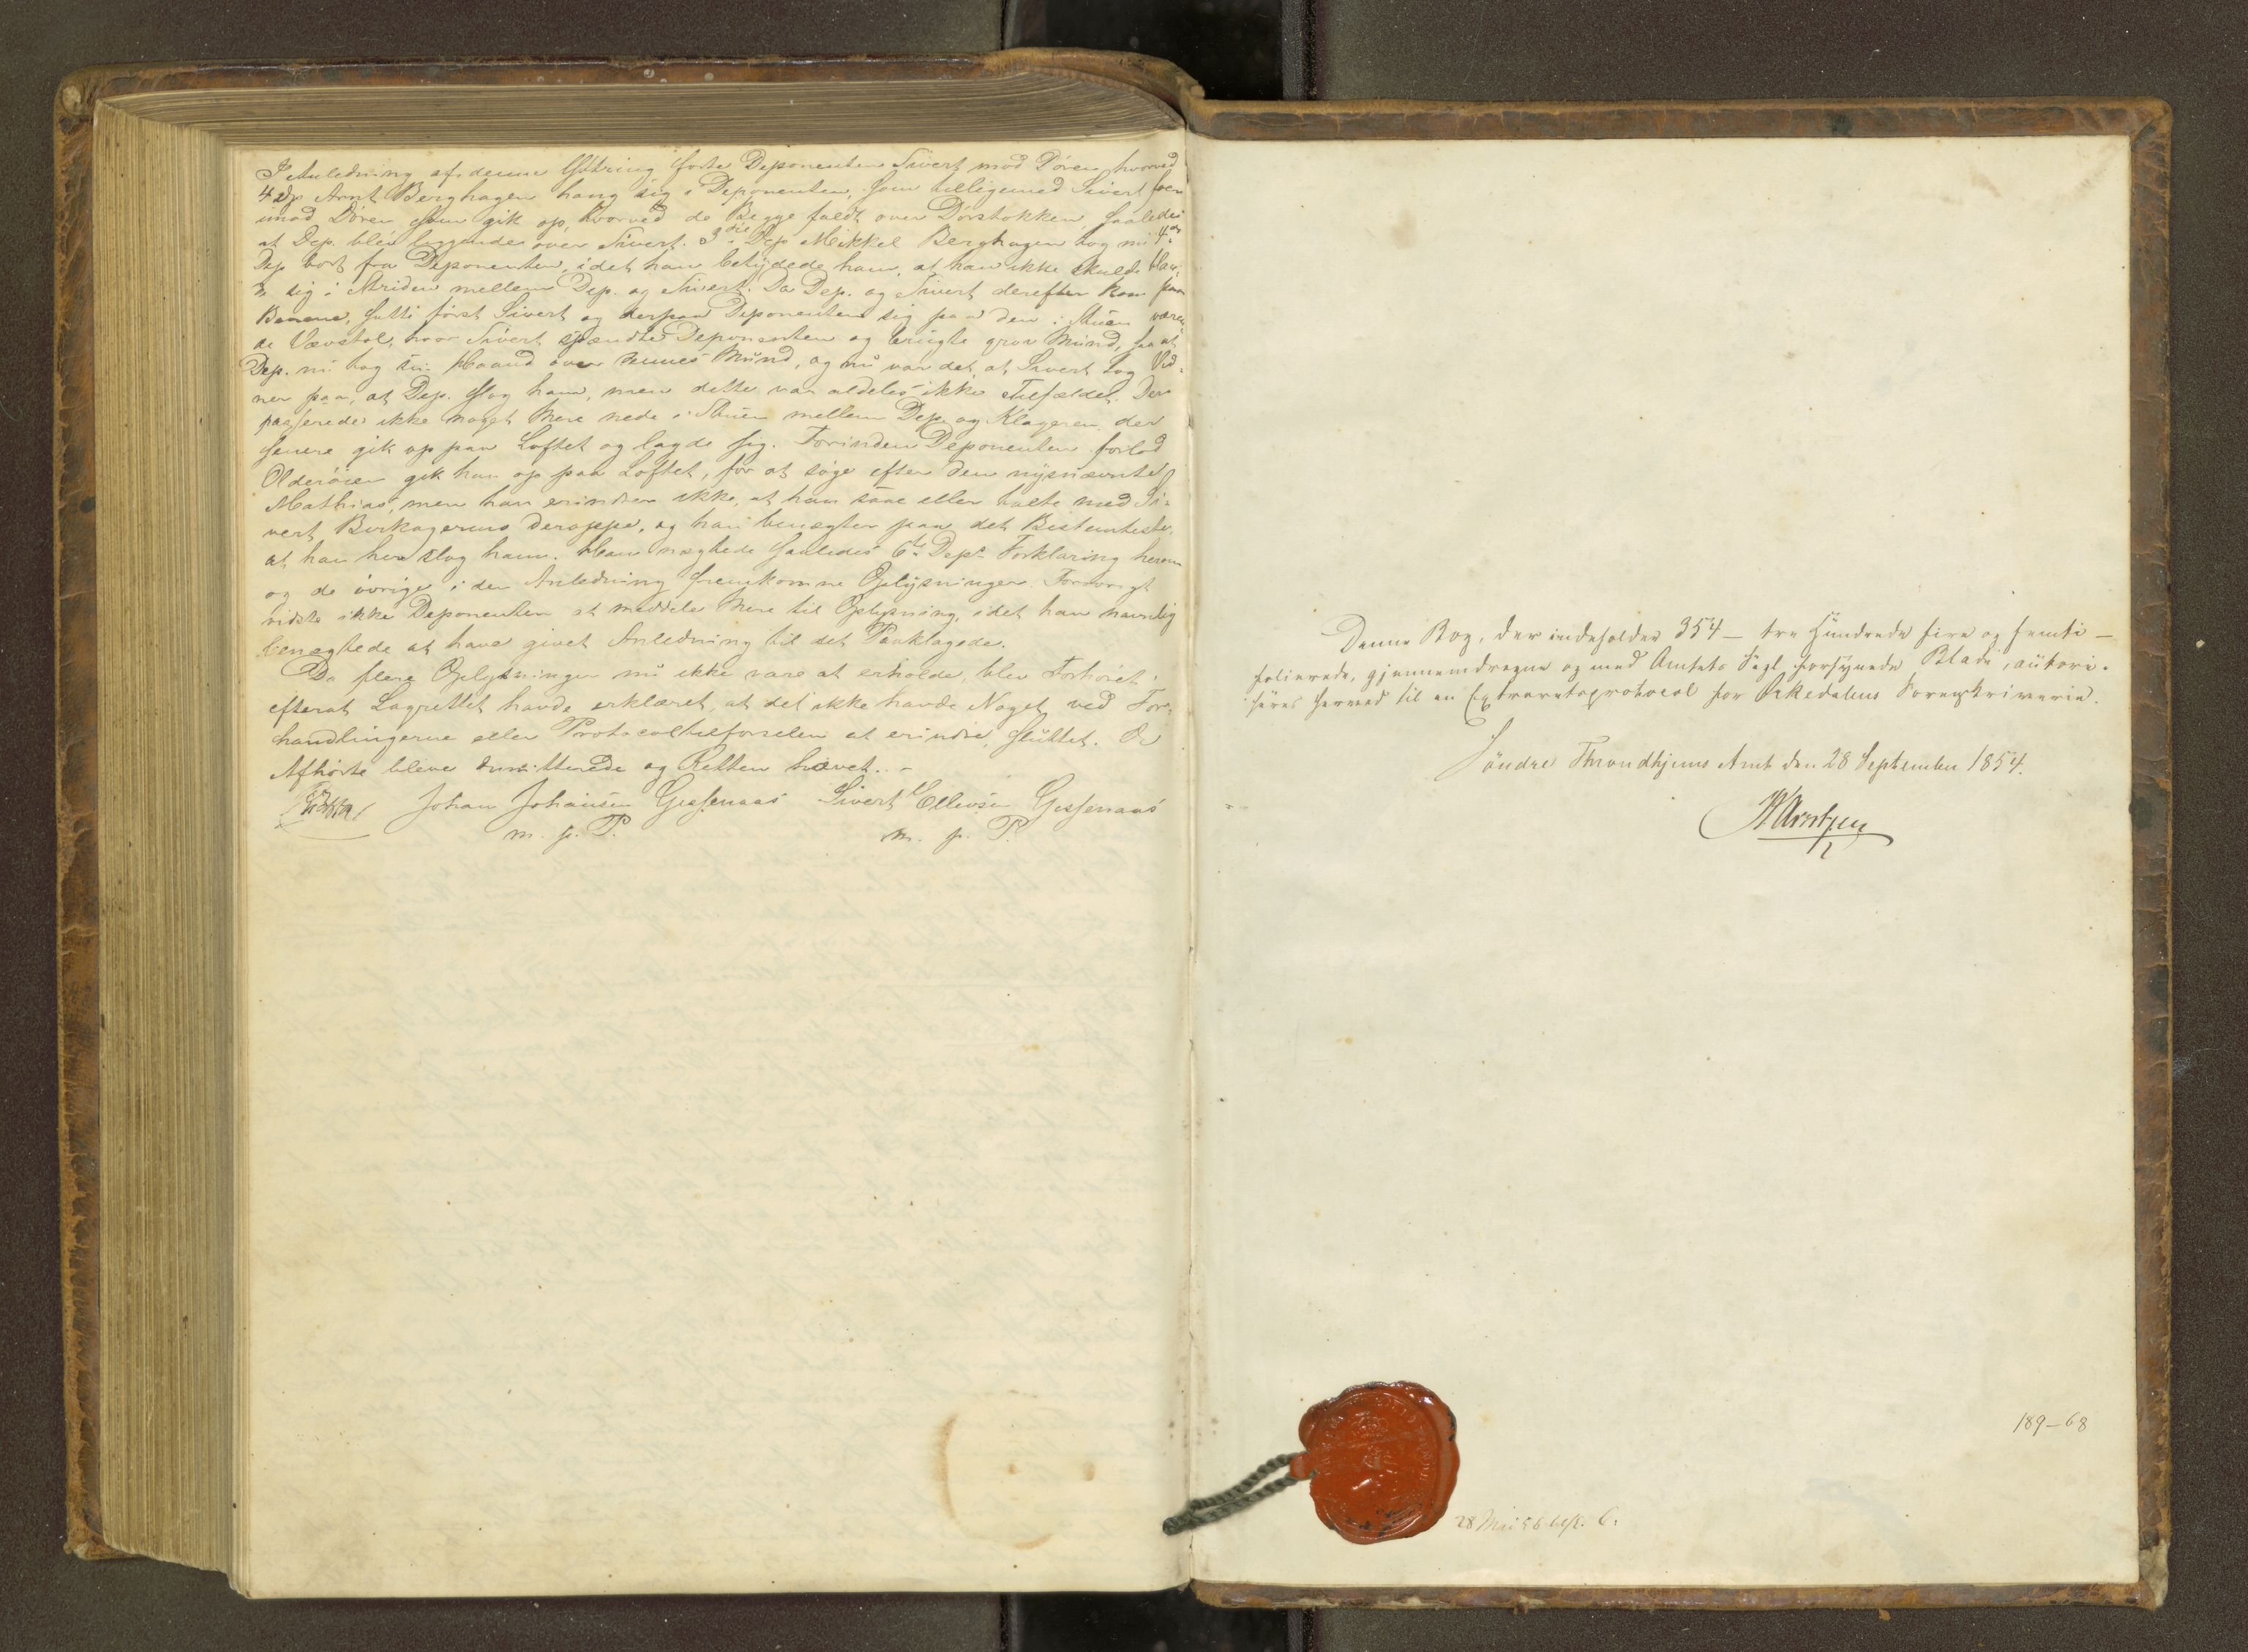 I Anledning af denne Yttring förte Deponenten Sivert mod Dören, hvorved
4 Dep Arnt Berghagen hang sig i Deponenten, som tilligemed Sivert foer
imod Dören som gik op, hvorved de Begge faldt over Dörstokken, saaledes
at Dep. blev liggende over Sivert. 3die Dep Mikkel Berghagen tog nu 4de
Dep bort fra Deponenten, idet han betydede ham, at han ikke skulde blan-
de sig i Striden mellem Dep. og Sivert. Da Dep. og Sivert derefter kom paa
Benene, satte först Sivert og derpaa Deponenten sig paa den i Stuen væren-
de Vævstol, hvor Sivert spændte Deponenten og brugte grov Mund, saa at
Dep. nu tog sin Haand over hannes Mund, og nu var det, at Sivert tog Vid-
ner paa, at Dep. slog ham, men dette var aldeles ikke Tilfældet. Der
passerede ikke noget mere nede i Stuen mellem Dep. og Klageren, der
senere gik op paa Loftet og lagde sig. Forinden Deponenten forlod
Olderöien gik han op paa Loftet, for at söge efter den nysnævnte
Mathias, men han erindrer ikke, at han saae eller talte med Si-
vert Burkageruns deroppe, og han benægter paa det Bestemteste,
at han her slog ham. Han nægtede saaledes 6te Deps Forklaring herom
og de övrige i den Anledning fremkomne Oplysninger. Forövrigt
vidste ikke Deponenten at meddele mere til Oplysning, idet han navnlig
benægtede at have givet Anledning til det Paaklagede.
Da flere Oplysninger nu ikke vare at erholde, blev Forhöret,
efterat Lagrettet havde erklæret, at det ikke havde Noget ved For-
handlingerne eller Protocoltilförselen at erindre, sluttet. De
Afhörte bleve dimitterede og Retten hævet. -
Johan Johansen Gjessenaas Sivert Ellevsen Gjessenaas
m. p. P. m. p. P.
Denne Bog, der indeholder 354 - tre Hundrede fire og femti -
folierede, gjennemdragne og med Amtets Segl forsynede Blade, autori-
seres herved til en Extraretsprotocol for Orkedalens Sorenskriverie.
Söndre Throndhjems Amt den 28 September 1854.
Arntzen
189-68
28 Mai 56 besk. 6.